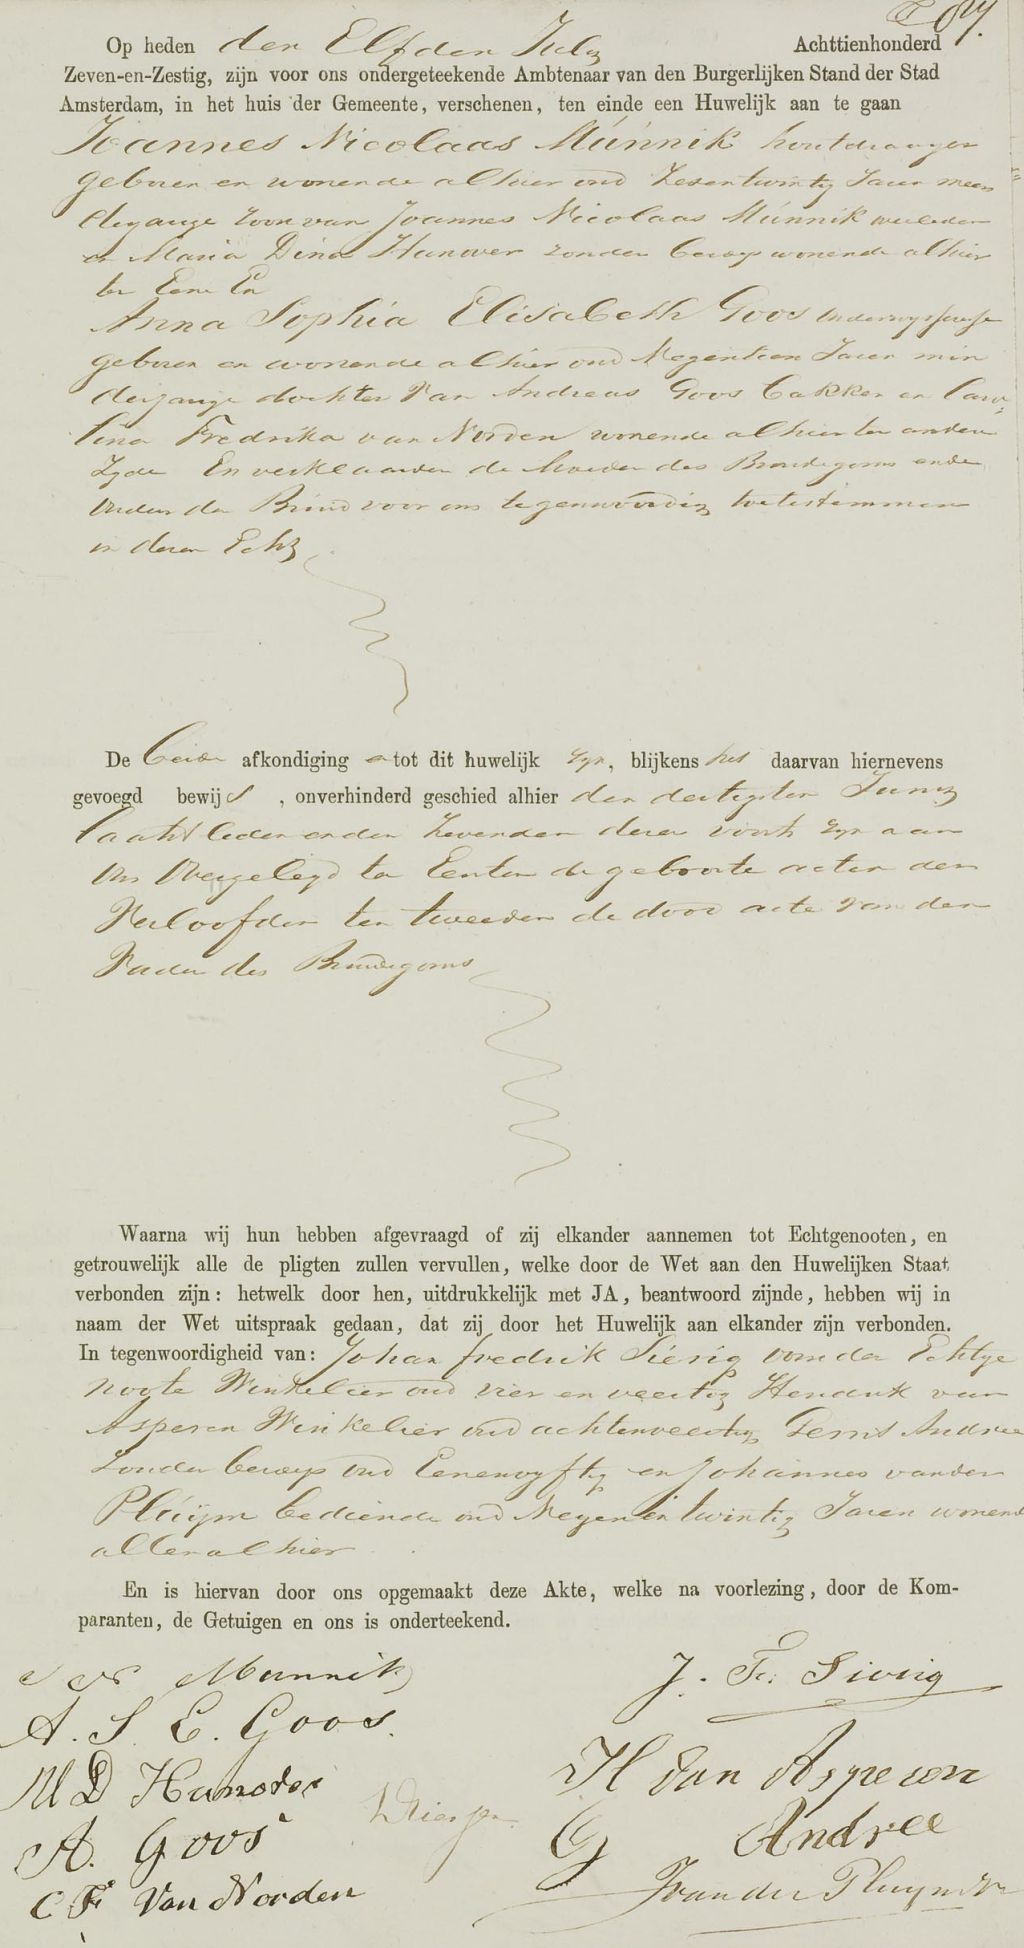 Op heden den Elfden July Achttienhonderd
Zeven-en-Zestig, zijn voor ons ondergeteekende Ambtenaar van den Burgerlijken Stand der Stad
Amsterdam, in het huis der Gemeente, verschenen, ten einde een Huwelijk aan te gaan
Joannes Nicolaas Múnnik houtdrager
geboren en wonende alhier oud Zesentwintig Jaren meer
derjarige Zoon van Joannes Nicolaas Múnnik overleden
en Maria Dina Hanover zonder beroep wonende alhier
ter Eene En
Anna Sophia Elisabeth Goos
geboren en wonende alhier oud Negentien Jaren min
derjarige dochter Van Andreas Goos bakker en Caro
lina Fredrika van Norden wonende alhier ter andere
Zyde En verklaarden de Moeder des Bruidegoms en de
Ouders der Bruid voor ons tegenwoordig toetestemmen
in dezen Echt
De beide afkondiging en tot dit huwelijk zyn, blijkens het daarvan hiernevens
gevoegd bewijs, onverhinderd geschied alhier den dertigsten Juny
laatstleden en den Zevenden dezer voorts zyn aan
Ons Overgelegd ten Eersten de geboorte acten der
Verloofden ten tweeden de dood acte van den
Vader des Bruidegoms
Waarna wij hun hebben afgevraagd of zij elkander aannemen tot Echtgenooten, en
getrouwelijk alle de pligten zullen vervullen, welke door de Wet aan den Huwelijken Staat
verbonden zijn: hetwelk door hen, uitdrukkelijk met JA, beantwoord zijnde, hebben wij in
naam der Wet uitspraak gedaan, dat zij door het Huwelijk aan elkander zijn verbonden.
In tegenwoordigheid van: Johan fredrik Sierig Echtge
noote Winkelier oud vier en veertig Hendrik van
Asperen Winkelier oud achtenveertig Gerrit Andree
Zonder beroep oud Eenenvyftig en Johannes van der
Plúijm bediende oud Negen en twintig Jaren wonend
allen alhier
En is hiervan door ons opgemaakt deze Akte, welke na voorlezing, door de Kom-
paranten, de Getuigen en ons is onderteekend.
Munnik
A. S. E. Goos.
M D Hanover
A. Goos
C F Van Norden
J. Fr. Sierig
H van Asperen
G Andree
J van der Pluym